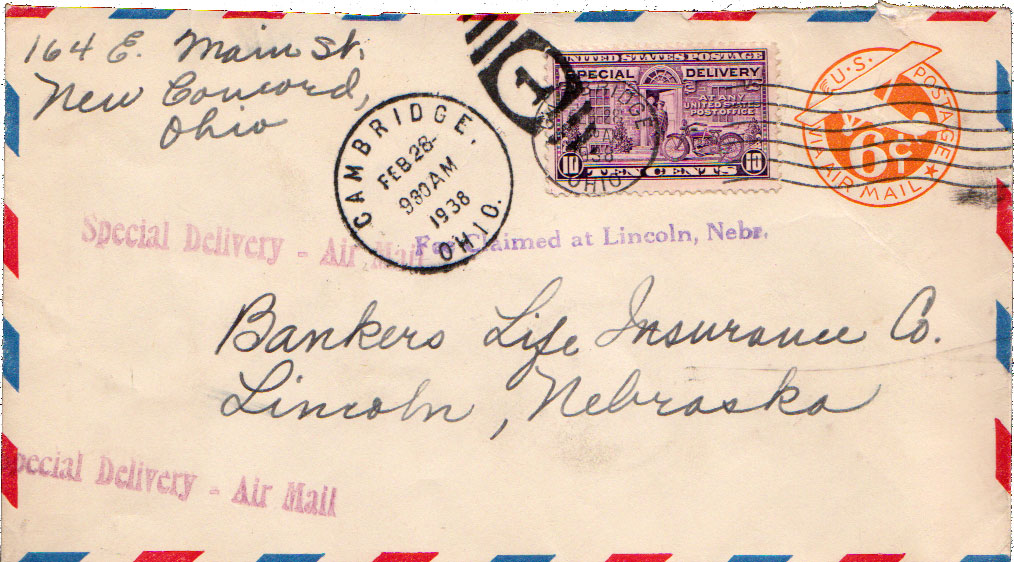 164 E. Main St.
New Concord,
Ohio
CAMBRIDGE
FEB 28
930AM
1938
OHIO.
1
UNITED STATES POSTAGE
SPECIAL DELIVERY
AT ANY
UNITED STATES
POST OFFICE
10 TEN CENTS 10
1938
OHIO
U.S. POSTAGE
6¢
VIA AIR MAIL
Special Delivery - Air Mail
Fee Claimed at Lincoln, Nebr.
Bankers Life Insurance Co.
Lincoln, Nebraska
Special Delivery - Air Mail